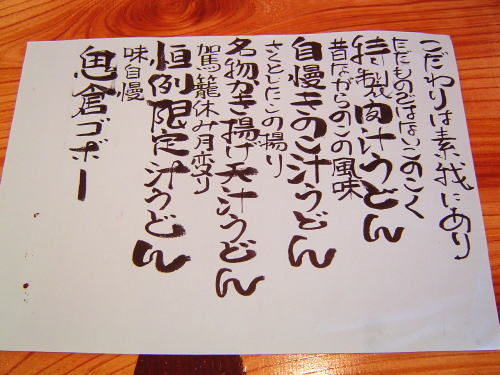 こだわりは素我にあり
ただものではないこのこく
特製肉汁うどん
昔ながらのこの風味
自慢きのこ汁うどん
さくとしたこの揚り
名物かき揚げ天汁うどん
駕籠休み月変り
恒例限定汁うどん
味自慢
思倉ゴボー